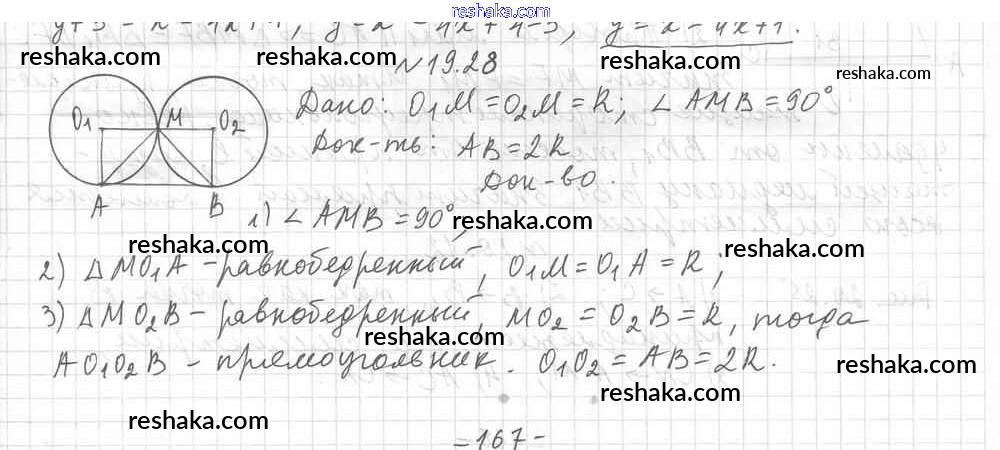 reshaka.com
y+3 = x² - 4x + 4, y = x² - 4x + 4 - 3, y = x² - 4x + 1.
reshaka.com reshaka.com reshaka.com
№ 19.28
reshaka.com
O₁ M O₂ Дано: O₁M = O₂M = R; ∠ AMB = 90°
Док-ть: AB = 2R
reshaka.com reshaka.com
Док-во.
A B 1) ∠ AMB = 90°,
reshaka.com
reshaka.com reshaka.com
2) △ MO₁A - равнобедренный, O₁M = O₁A = R;
3) △ MO₂B - равнобедренный, MO₂ = O₂B = R, тогда
reshaka.com
AO₁O₂B - прямоугольник. O₁O₂ = AB = 2R.
reshaka.com
reshaka.com
reshaka.com
- 167 -